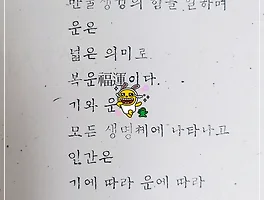 만물생성의 힘을 말하며
운은
넓은 의미로
복운福運이다.
기와 운
모든 생명체에 나타나고
인간은
기에 따라 운에 따라